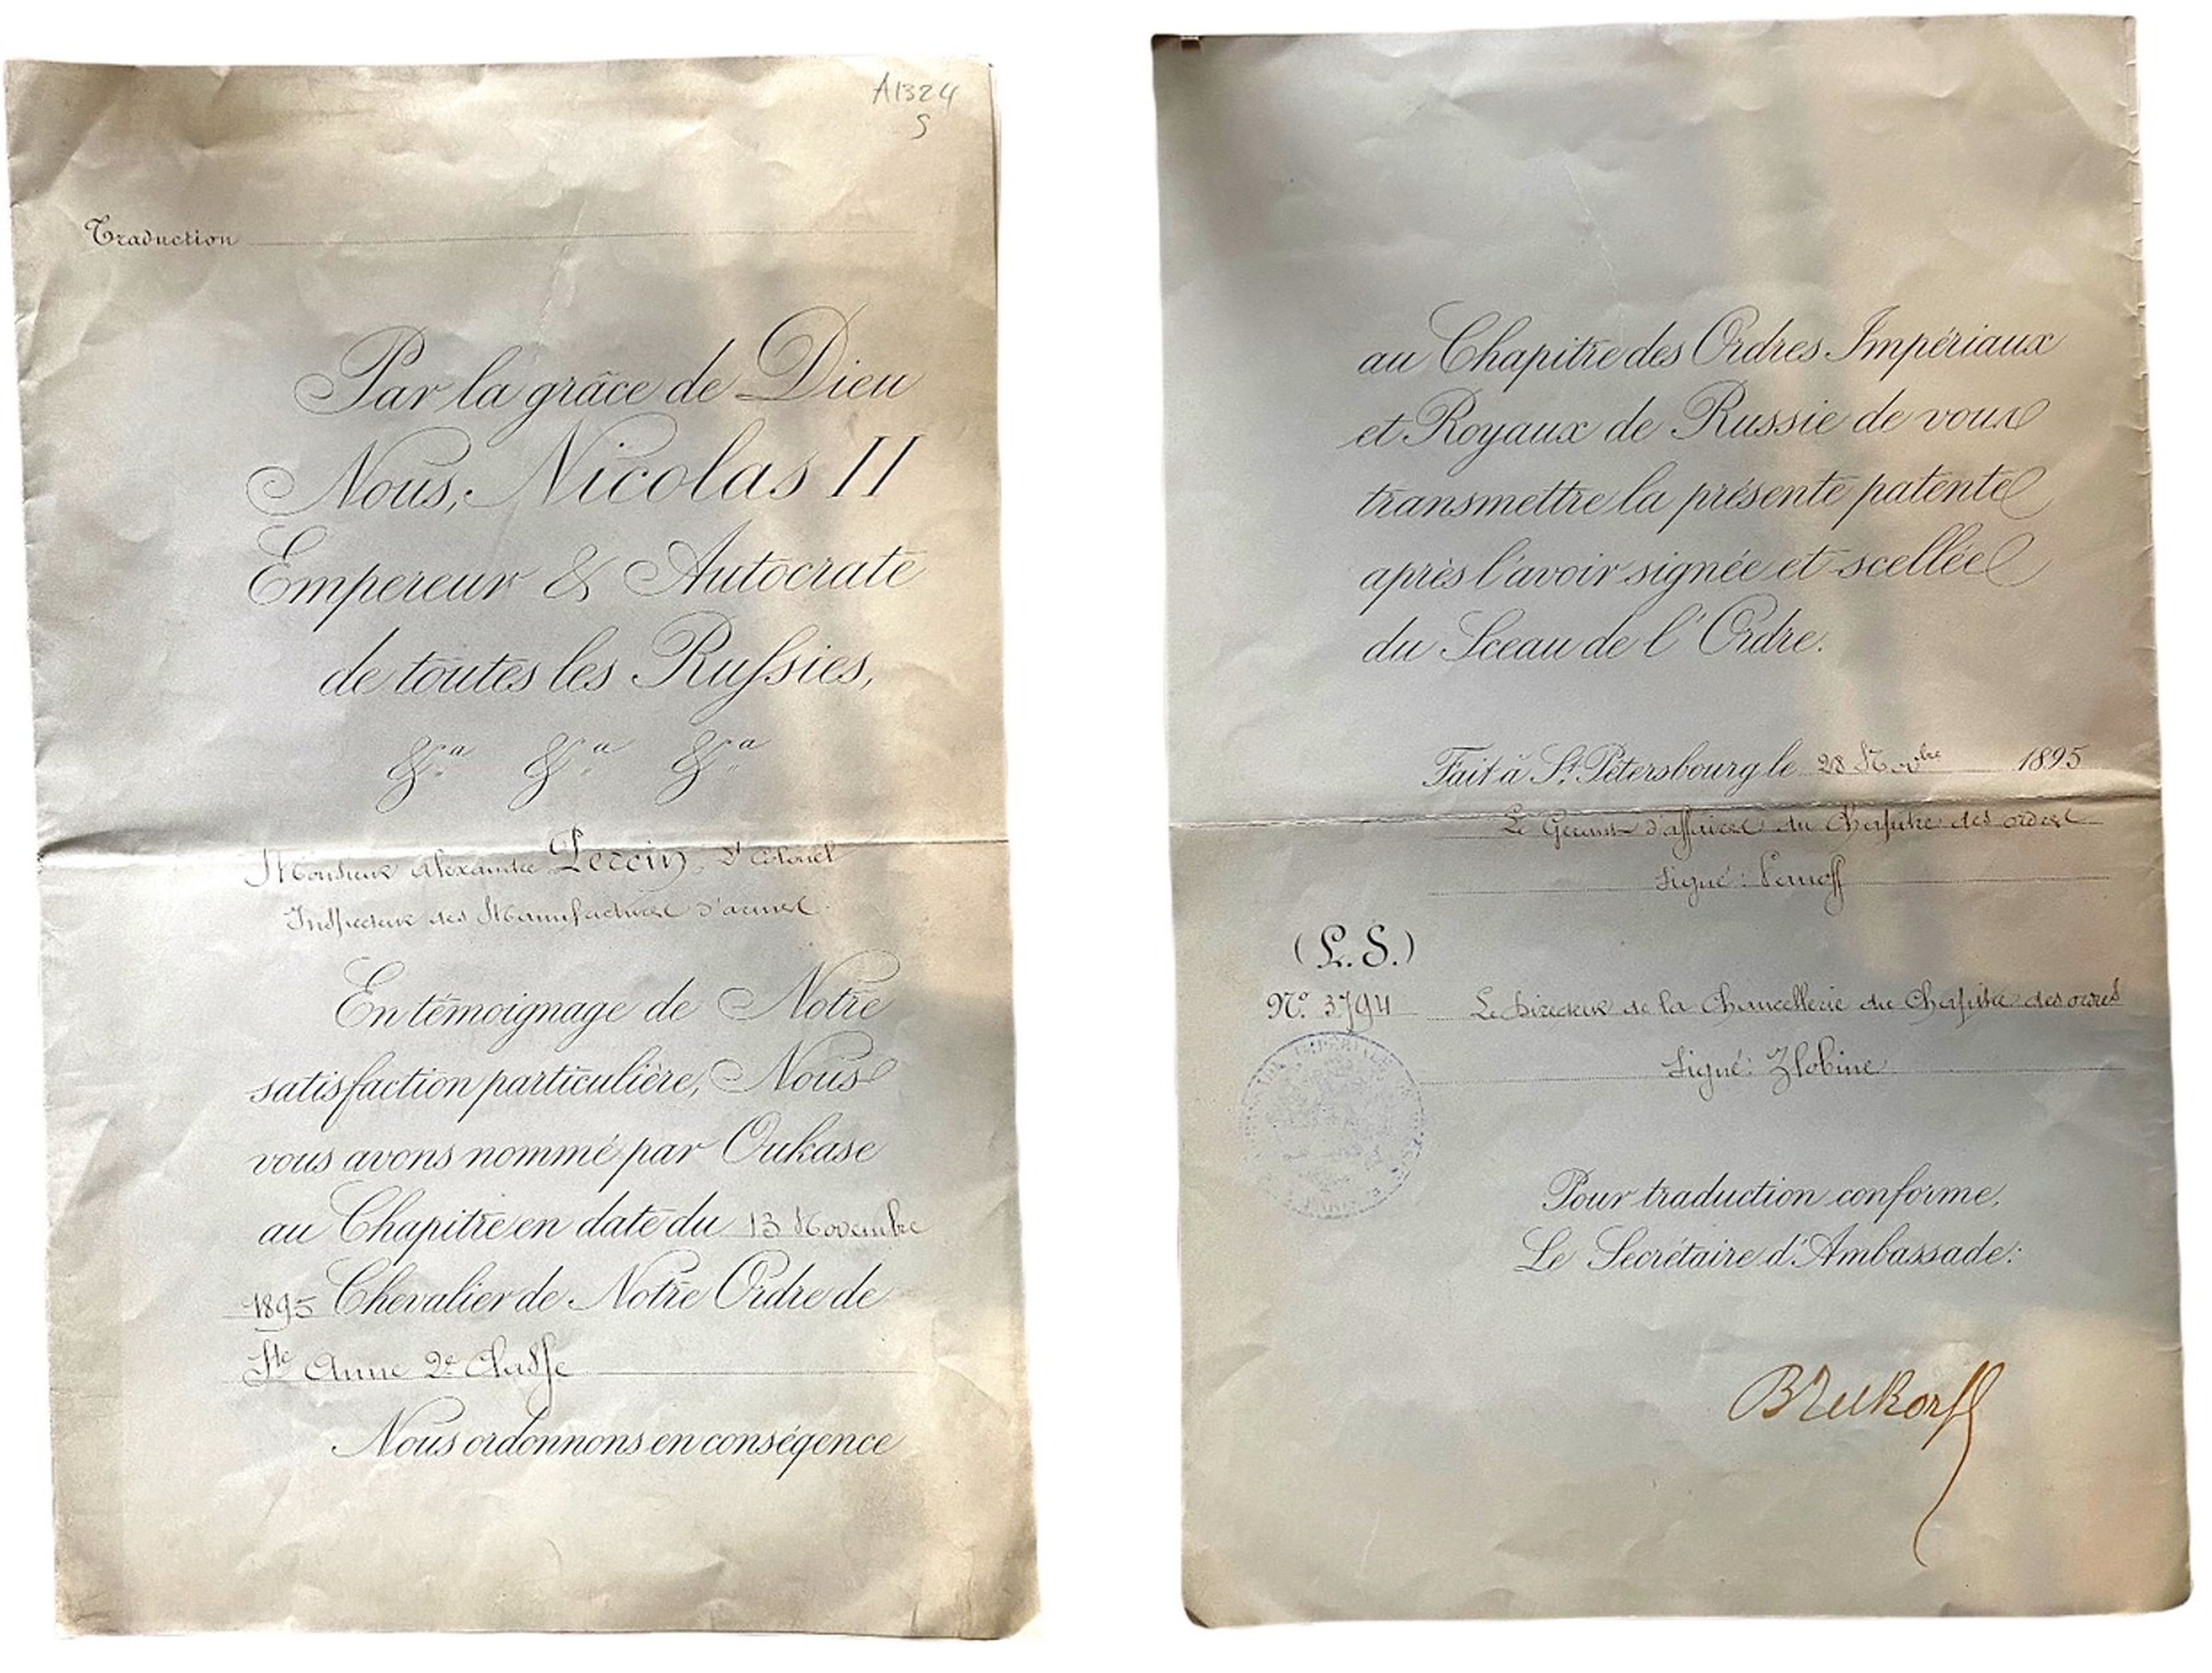 A1324
S
Traduction
Par la grâce de Dieu
Nous, Nicolas II
Empereur & Autocrate
de toutes les Russies,
&a &a &a
Monsieur Alexandre Percin, Lt Colonel
Inspecteur des Manufactures d'armes.
En témoignage de Notre
satisfaction particulière, Nous
vous avons nommé par Oukase
au Chapitre en date du 13 Novembre
1895 Chevalier de Notre Ordre de
Ste Anne 2e Classe
Nous ordonnons en conségence
au Chapitre des Ordres Impériaux
et Royaux de Russie de vous
transmettre la présente patente
après l'avoir signée et scellée
du Sceau de l'Ordre.
Fait à St Pétersbourg le 28 Novbre 1895
Le Gérant d'affaires du Chapitre des ordres
Signé:
(L. S.)
No. 3794 Le Directeur de la Chancellerie du Chapitre des ordres
Signé: Zlobine
Pour traduction conforme,
Le Secrétaire d'Ambassade: